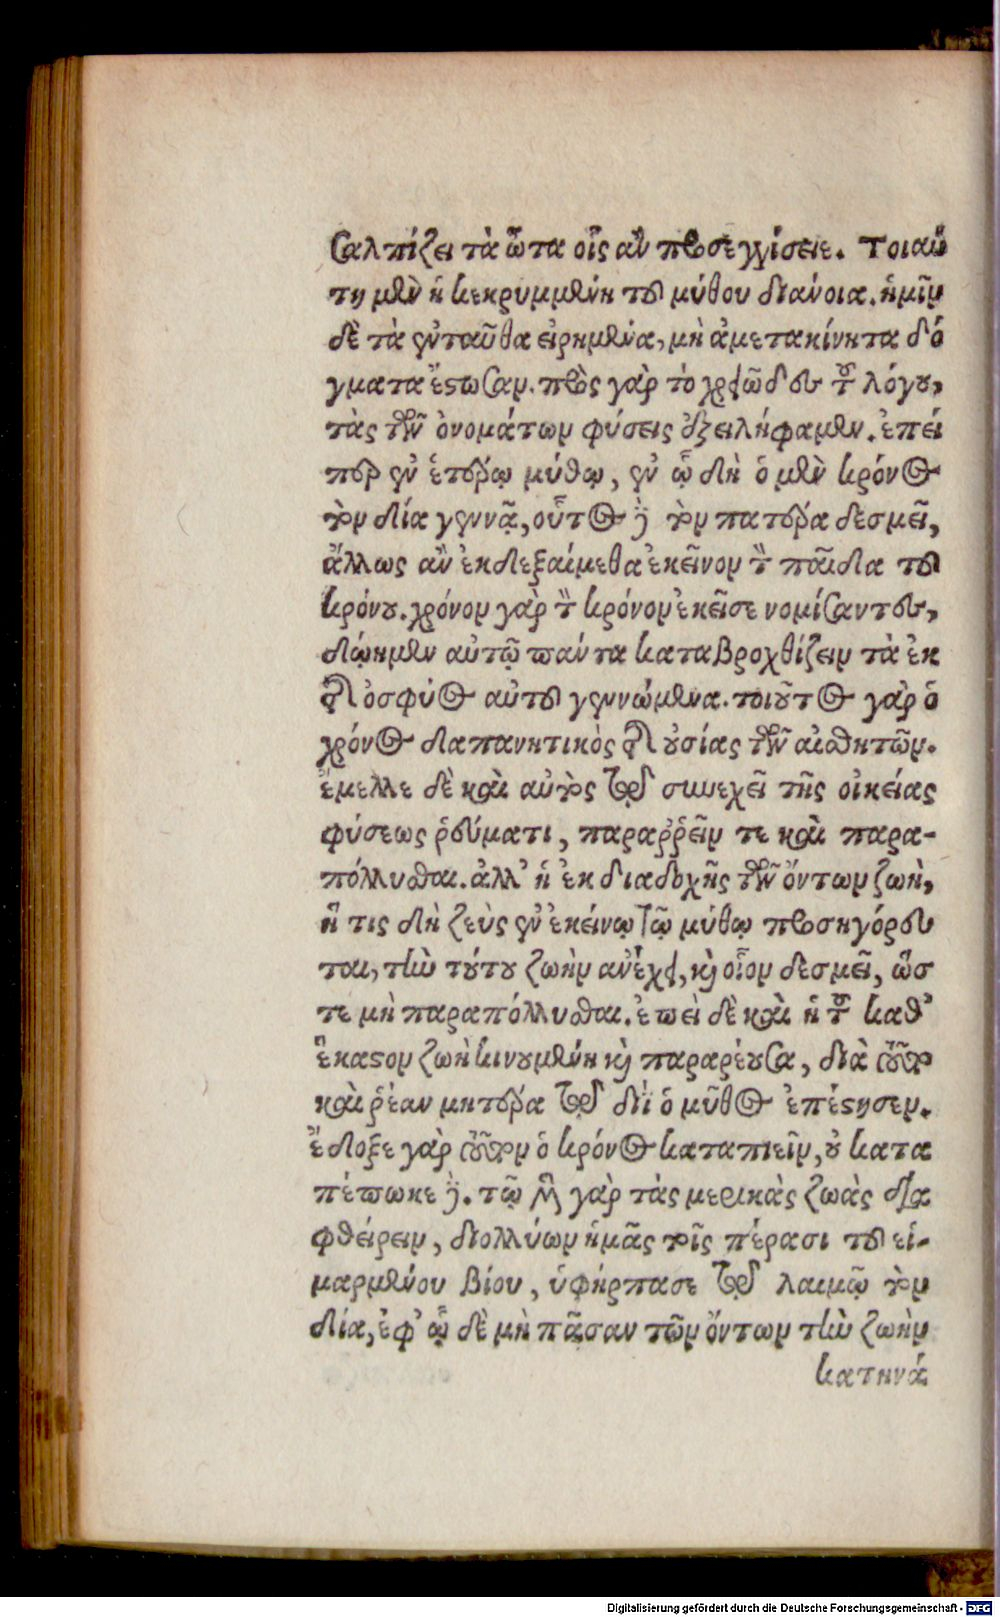 σαλπίζει τὰ ὦτα οἷς ἂν προσεγγίσειε. Τοιαύ
τη μὲν ἡ κεκρυμμένη τοῦ μύθου διάνοια. ἡμῖν
δὲ τὰ ἐνταῦθα εἰρημένα, μὴ ἀμετακίνητα δό
γματα ἔστωσαν. πρὸς γὰρ τὸ χρειῶδες τοῦ λόγου,
τὰς τῶν ὀνομάτων φύσεις ἐξειλήφαμεν. ἐπεί
περ ἐν ἑτέρῳ μύθῳ, ἐν ᾧ δὴ ὁ μὲν κρόνος
τὸν δία γεννᾷ, οὗτος δὲ τὸν πατέρα δεσμεῖ,
ἄλλως ἂν ἐκδεξαίμεθα ἐκεῖνον τὸν παῖδα τοῦ
κρόνου. χρόνον γὰρ τὸν κρόνον ἐκεῖσε νομίσαντες,
δώημεν αὐτῷ πάντα καταβροχθίζειν τὰ ἐκ
τῆς ὀσφύος αὐτοῦ γεννώμενα. τοιοῦτος γὰρ ὁ
χρόνος δαπανητικὸς τῆς οὐσίας τῶν αἰσθητῶν.
ἔμελλε δὲ καὶ αὐτὸς τῷ συνεχεῖ τῆς οἰκείας
φύσεως ῥεύματι, παραῤῥεῖν τε καὶ παρα-
πόλλυσθαι. ἀλλ' ἡ ἐκ διαδοχῆς τῶν ὄντων ζωὴ,
ἥ τις δὴ ζεὺς ἐν ἐκείνῳ τῷ μύθῳ προσηγόρευ
ται, τὴν τούτου ζωὴν ἀνέχει, καὶ οἷον δεσμεῖ, ὥσ
τε μὴ παραπόλλυσθαι. ἐπεὶ δὲ καὶ ἡ τοῦ καθ'
ἕκαστον ζωὴ κινουμένη καὶ παραρέουσα, διὰ τοῦτο
καὶ ῥέαν μητέρα τῷ διῒ ὁ μῦθος ἐπέστησεν.
ἔδοξε γὰρ τοῦτον ὁ κρόνος καταπιεῖν, οὐ κατα
πέπωκε δέ. τῷ μὲν γὰρ τὰς μερικὰς ζωὰς δια
φθείρειν, διολλύων ἡμᾶς τοῖς πέρασι τοῦ εἱ-
μαρμένου βίου, ὑφήρπασε τῷ λαιμῷ τὸν
δία, ἐφ' ᾧ δὲ μὴ πᾶσαν τῶν ὄντων τὴν ζωὴν
κατηνά
Digitalisierung gefördert durch die Deutsche Forschungsgemeinschaft - DFG